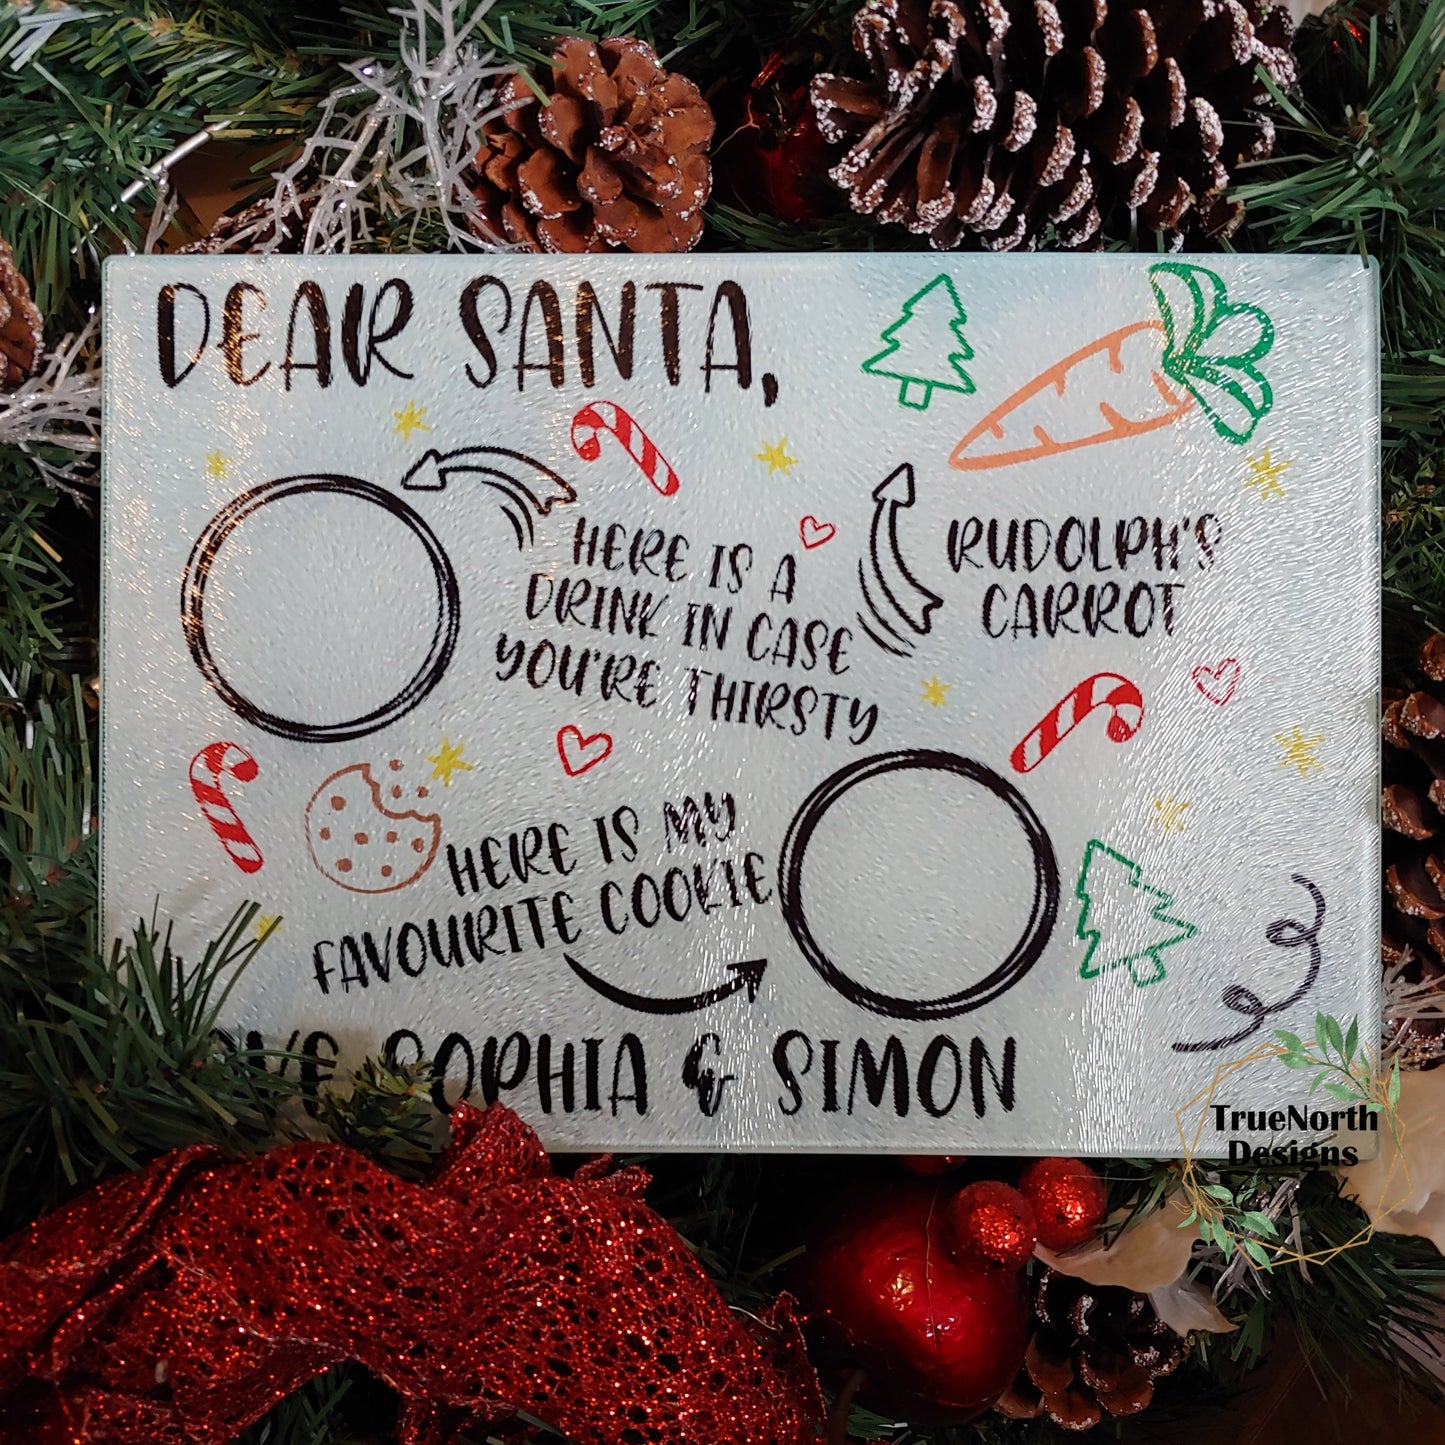 DEAR SANTA,
HERE IS A
DRINK IN CASE
YOU'RE THIRSTY
RUDOLPH'S
CARROT
HERE IS MY
FAVOURITE COOKIE
SOPHIA & SIMON
TrueNorth
Designs
Canada